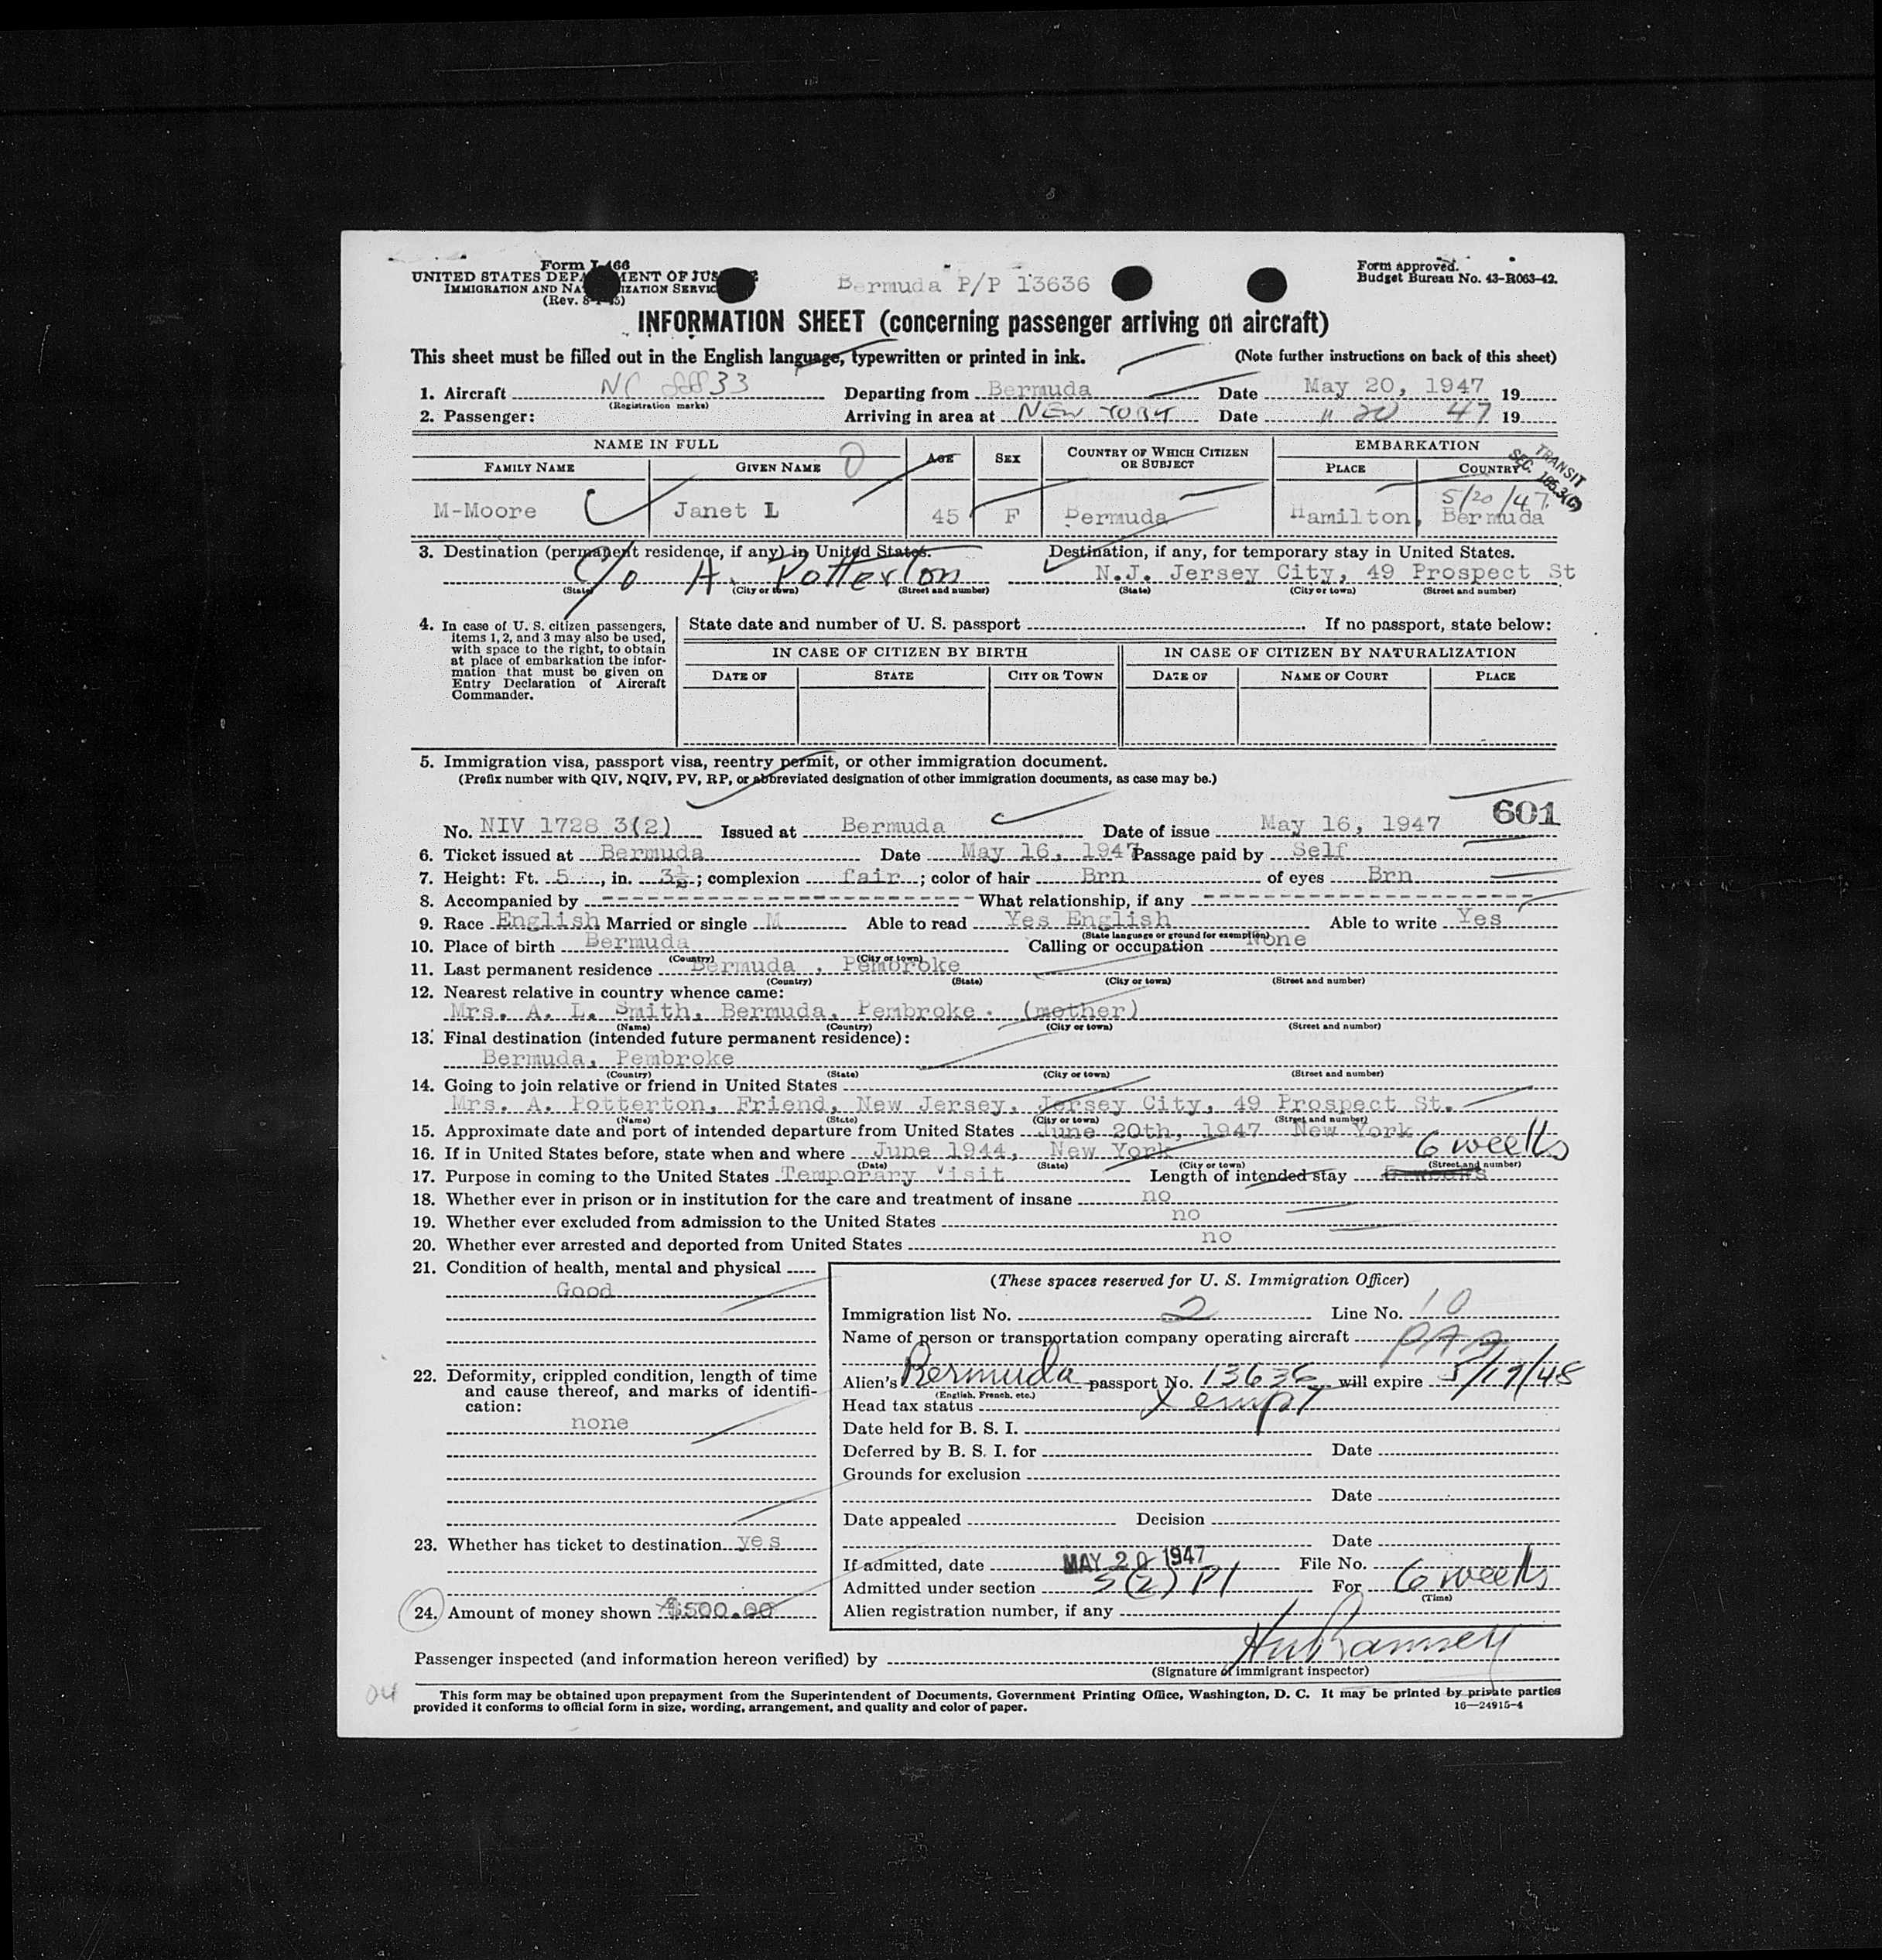 Form I-466
UNITED STATES DEPARTMENT OF JUSTICE
IMMIGRATION AND NATURALIZATION SERVICE
(Rev.
Bermuda P/P 13636
Form approved.
Budget Bureau No. 43-R063-42.
INFORMATION SHEET (concerning passenger arriving on aircraft)
This sheet must be filled out in the English language, typewritten or printed in ink. (Note further instructions on back of this sheet)
1. Aircraft NC 88833 Departing from Bermuda Date May 20, 1947 19
(Registration marks)
2. Passenger: Arriving in area at NEW YORK Date " 20 47 19
NAME IN FULL AGE SEX COUNTRY OF WHICH CITIZEN OR SUBJECT EMBARKATION
FAMILY NAME GIVEN NAME PLACE COUNTRY
TRANSIT
SEC.
5/20/47
M-Moore Janet L 45 F Bermuda Hamilton, Bermuda
3. Destination (permanent residence, if any) in United States. Destination, if any, for temporary stay in United States.
C/o A. Potterton N.J. Jersey City, 49 Prospect St
(State) (City or town) (Street and number) (State) (City or town) (Street and number)
4. In case of U. S. citizen passengers, items 1, 2, and 3 may also be used, with space to the right, to obtain at place of embarkation the information that must be given on Entry Declaration of Aircraft Commander.
State date and number of U. S. passport If no passport, state below:
IN CASE OF CITIZEN BY BIRTH IN CASE OF CITIZEN BY NATURALIZATION
DATE OF STATE CITY OR TOWN DATE OF NAME OF COURT PLACE
5. Immigration visa, passport visa, reentry permit, or other immigration document.
(Prefix number with QIV, NQIV, PV, RP, or abbreviated designation of other immigration documents, as case may be.)
601
No. NIV 1728 3(2) Issued at Bermuda Date of issue May 16, 1947
6. Ticket issued at Bermuda Date May 16, 1947 Passage paid by Self
7. Height: Ft. 5, in. 3½; complexion fair; color of hair Brn of eyes Brn
8. Accompanied by ---- What relationship, if any ----
9. Race English Married or single M Able to read Yes English Able to write Yes
(State language or ground for exemption)
10. Place of birth Bermuda Calling or occupation None
(Country) (City or town)
11. Last permanent residence Bermuda, Pembroke
(Country) (State) (City or town) (Street and number)
12. Nearest relative in country whence came:
Mrs. A. L. Smith, Bermuda, Pembroke. (mother)
(Name) (Country) (City or town) (Street and number)
13. Final destination (intended future permanent residence):
Bermuda, Pembroke
(Country) (State) (City or town) (Street and number)
14. Going to join relative or friend in United States
Mrs. A. Potterton, Friend, New Jersey, Jersey City, 49 Prospect St.
(Name) (State) (City or town) (Street and number)
15. Approximate date and port of intended departure from United States June 20th, 1947 New York
16. If in United States before, state when and where June 1944, New York
(Date) (State) (City or town) (Street and number)
6 weeks
17. Purpose in coming to the United States Temporary Visit Length of intended stay
18. Whether ever in prison or in institution for the care and treatment of insane no
19. Whether ever excluded from admission to the United States no
20. Whether ever arrested and deported from United States no
21. Condition of health, mental and physical
Good
22. Deformity, crippled condition, length of time and cause thereof, and marks of identification:
none
23. Whether has ticket to destination yes
24. Amount of money shown $500.00
(These spaces reserved for U. S. Immigration Officer)
Immigration list No. 2 Line No. 10
Name of person or transportation company operating aircraft PAA
Alien's Bermuda passport No. 13636 will expire 5/19/48
(English, French, etc.)
Head tax status Xempt
Date held for B. S. I.
Deferred by B. S. I. for Date
Grounds for exclusion
Date
Date appealed Decision
Date
If admitted, date MAY 20 1947 File No.
Admitted under section 3(2) P1 For 6 weeks
(Time)
Alien registration number, if any
Passenger inspected (and information hereon verified) by
(Signature of immigrant inspector)
04
This form may be obtained upon prepayment from the Superintendent of Documents, Government Printing Office, Washington, D. C. It may be printed by private parties
provided it conforms to official form in size, wording, arrangement, and quality and color of paper. 16—24915-4